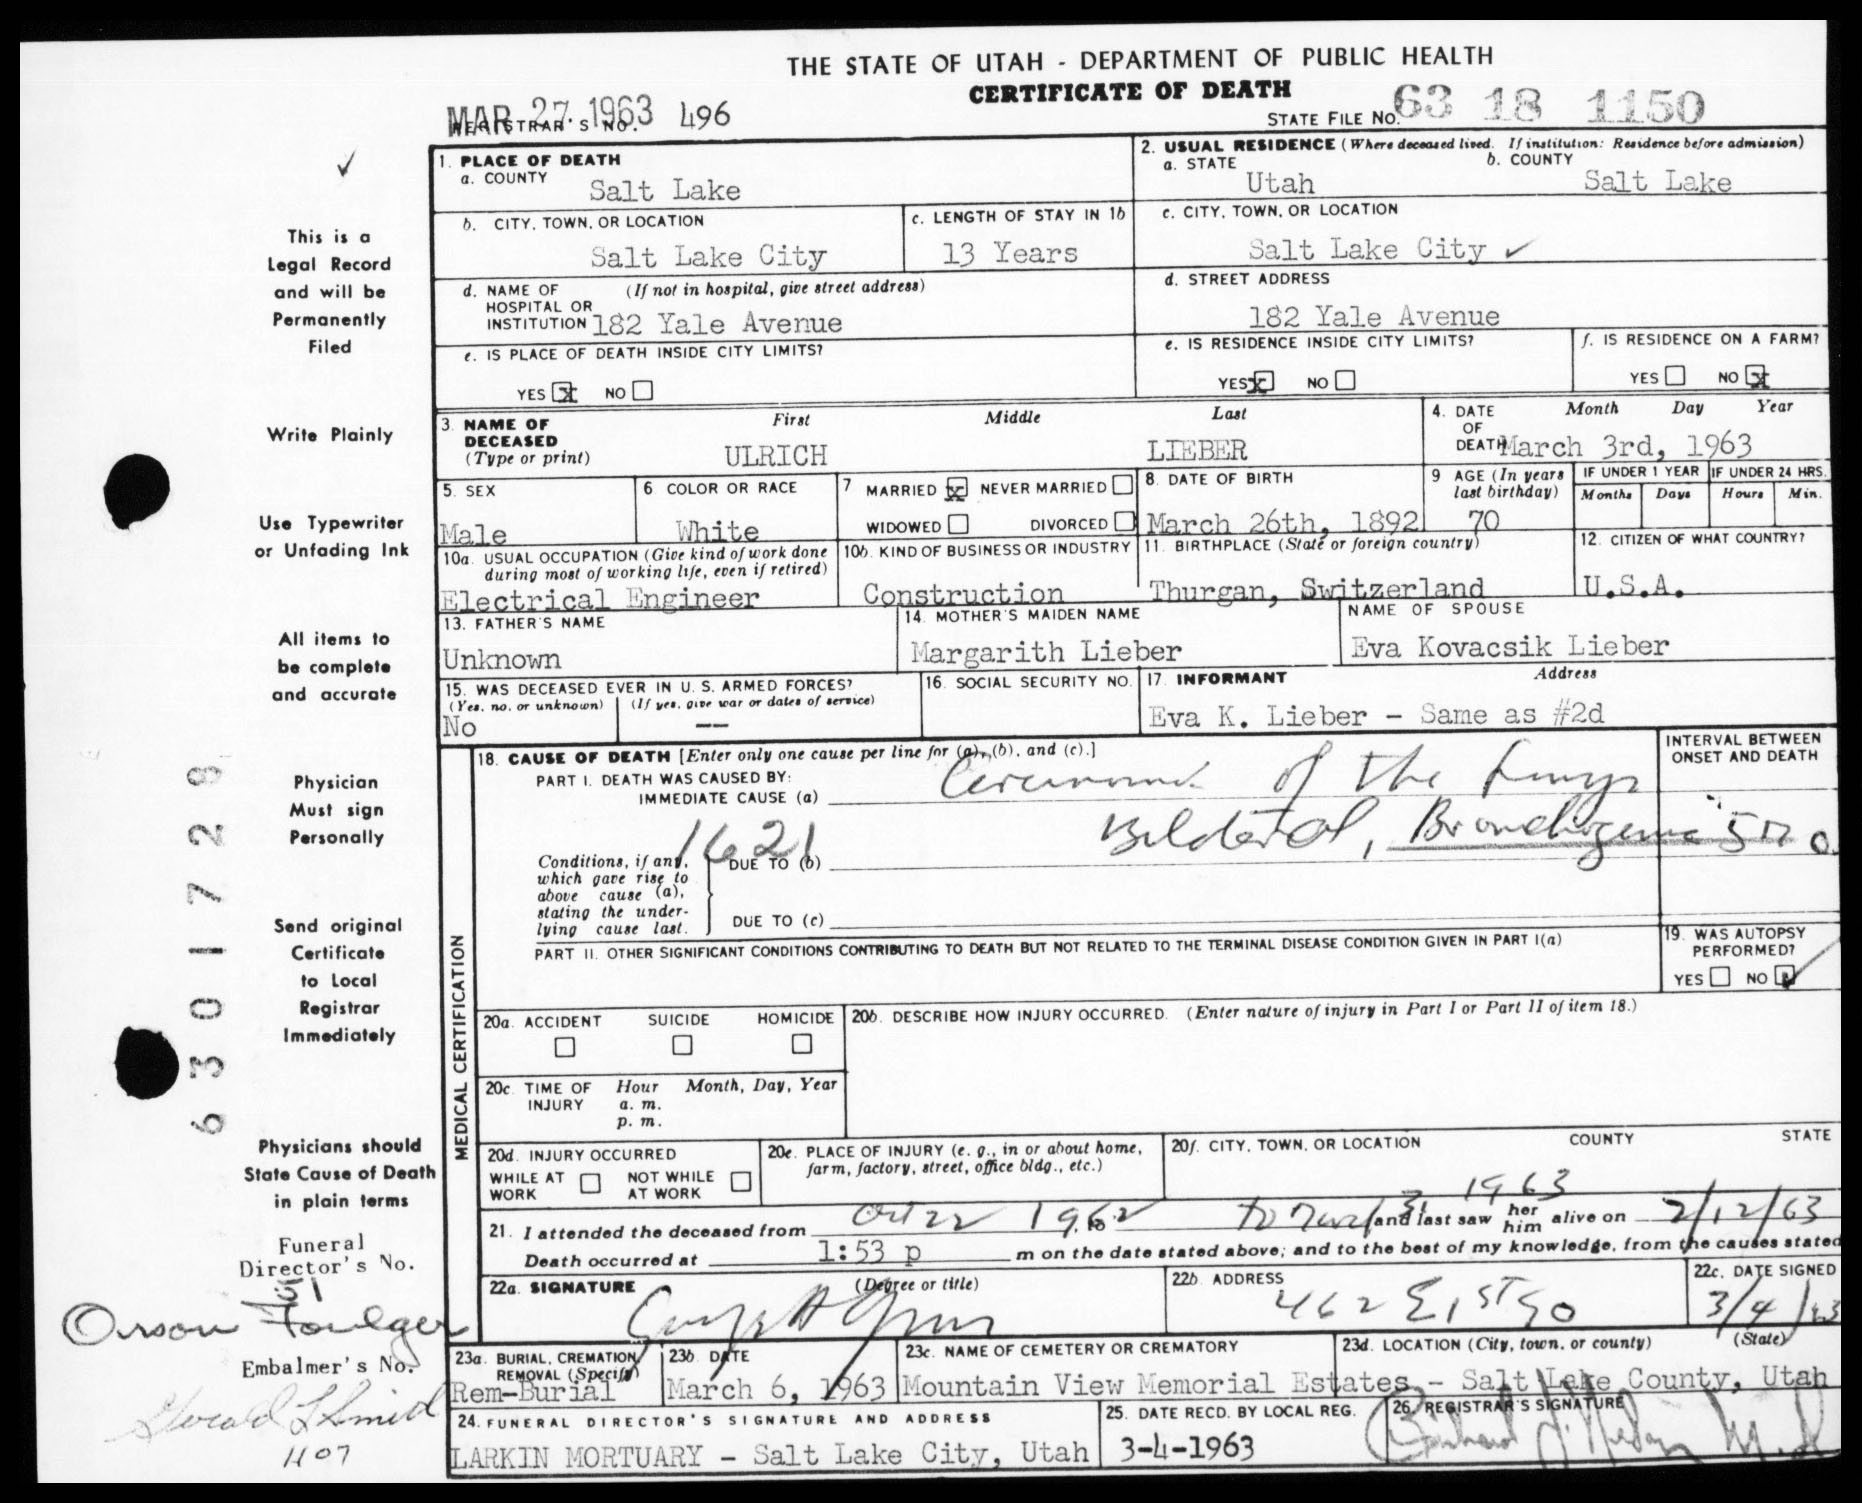 THE STATE OF UTAH - DEPARTMENT OF PUBLIC HEALTH
CERTIFICATE OF DEATH
MAR 27 1963 496
REGISTRAR'S NO.
STATE FILE NO. 63 18 1150
This is a
Legal Record
and will be
Permanently
Filed
Write Plainly
Use Typewriter
or Unfading Ink
All items to
be complete
and accurate
Physician
Must sign
Personally
Send original
Certificate
to Local
Registrar
Immediately
Physicians should
State Cause of Death
in plain terms
Funeral
Director's No.
51
Orson Foulger
Embalmer's No.
1107
6301728
1. PLACE OF DEATH
a. COUNTY
Salt Lake
2. USUAL RESIDENCE (Where deceased lived. If institution: Residence before admission)
a. STATE b. COUNTY
Utah Salt Lake
b. CITY, TOWN, OR LOCATION
Salt Lake City
c. LENGTH OF STAY IN 1b
13 Years
c. CITY, TOWN, OR LOCATION
Salt Lake City ✓
d. NAME OF (If not in hospital, give street address)
HOSPITAL OR
INSTITUTION 182 Yale Avenue
d. STREET ADDRESS
182 Yale Avenue
e. IS PLACE OF DEATH INSIDE CITY LIMITS?
YES x NO
e. IS RESIDENCE INSIDE CITY LIMITS?
YES x NO
f. IS RESIDENCE ON A FARM?
YES NO x
3. NAME OF DECEASED (Type or print)
First Middle Last
ULRICH LIEBER
4. DATE OF DEATH Month Day Year
March 3rd, 1963
5. SEX
Male
6 COLOR OR RACE
White
7 MARRIED x NEVER MARRIED
WIDOWED DIVORCED
8. DATE OF BIRTH
March 26th, 1892
9 AGE (In years last birthday)
70
IF UNDER 1 YEAR IF UNDER 24 HRS.
Months Days Hours Min.
10a. USUAL OCCUPATION (Give kind of work done
during most of working life, even if retired)
Electrical Engineer
10b. KIND OF BUSINESS OR INDUSTRY
Construction
11. BIRTHPLACE (State or foreign country)
Thurgan, Switzerland
12. CITIZEN OF WHAT COUNTRY?
U.S.A.
13. FATHER'S NAME
Unknown
14. MOTHER'S MAIDEN NAME
Margarith Lieber
NAME OF SPOUSE
Eva Kovacsik Lieber
15. WAS DECEASED EVER IN U. S. ARMED FORCES?
(Yes, no, or unknown) (If yes, give war or dates of service)
No —
16. SOCIAL SECURITY NO.
17. INFORMANT Address
Eva K. Lieber - Same as #2d
MEDICAL CERTIFICATION
18. CAUSE OF DEATH [Enter only one cause per line for (a), (b), and (c).]
PART I. DEATH WAS CAUSED BY:
IMMEDIATE CAUSE (a) of the Lungs
Bilateral, Bronchogenic
INTERVAL BETWEEN
ONSET AND DEATH
1621
Conditions, if any,
which gave rise to
above cause (a),
stating the under-
lying cause last.
DUE TO (b)
DUE TO (c)
PART II. OTHER SIGNIFICANT CONDITIONS CONTRIBUTING TO DEATH BUT NOT RELATED TO THE TERMINAL DISEASE CONDITION GIVEN IN PART I(a)
19. WAS AUTOPSY
PERFORMED?
YES NO ✓
20a. ACCIDENT SUICIDE HOMICIDE
20b. DESCRIBE HOW INJURY OCCURRED. (Enter nature of injury in Part I or Part II of item 18.)
20c. TIME OF INJURY Hour Month, Day, Year
a. m.
p. m.
20d. INJURY OCCURRED
WHILE AT WORK NOT WHILE AT WORK
20e. PLACE OF INJURY (e. g., in or about home,
farm, factory, street, office bldg., etc.)
20f. CITY, TOWN, OR LOCATION COUNTY STATE
1963
21. I attended the deceased from Oct 22 1962, to and last saw her him alive on 2/12/63
Death occurred at 1:53 p m on the date stated above; and to the best of my knowledge, from the causes stated
22a. SIGNATURE (Degree or title)
22b. ADDRESS
462 E 1st So
22c. DATE SIGNED
3/4/63
23a. BURIAL, CREMATION,
REMOVAL (Specify)
Rem-Burial
23b. DATE
March 6, 1963
23c. NAME OF CEMETERY OR CREMATORY
Mountain View Memorial Estates -
23d. LOCATION (City, town, or county) (State)
Salt Lake County, Utah
24. FUNERAL DIRECTOR'S SIGNATURE AND ADDRESS
LARKIN MORTUARY - Salt Lake City, Utah
25. DATE RECD. BY LOCAL REG.
3-4-1963
26. REGISTRAR'S SIGNATURE